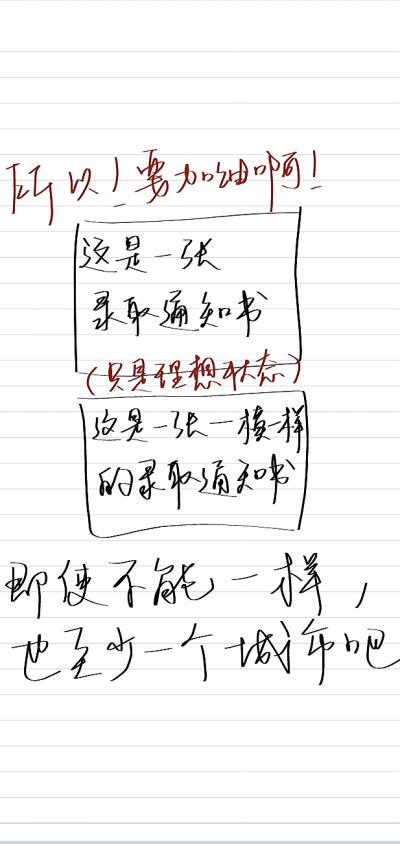 所以！要加油啊！
这是一张
录取通知书
（只是理想状态）
这是一张一模一样
的录取通知书
即使不能一样，
也至少一个城市吧